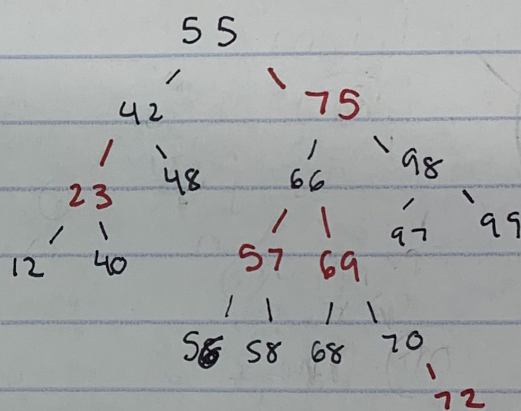 55
42 75
23 48 66 98
12 40 57 69 97 99
56 58 68 70
72